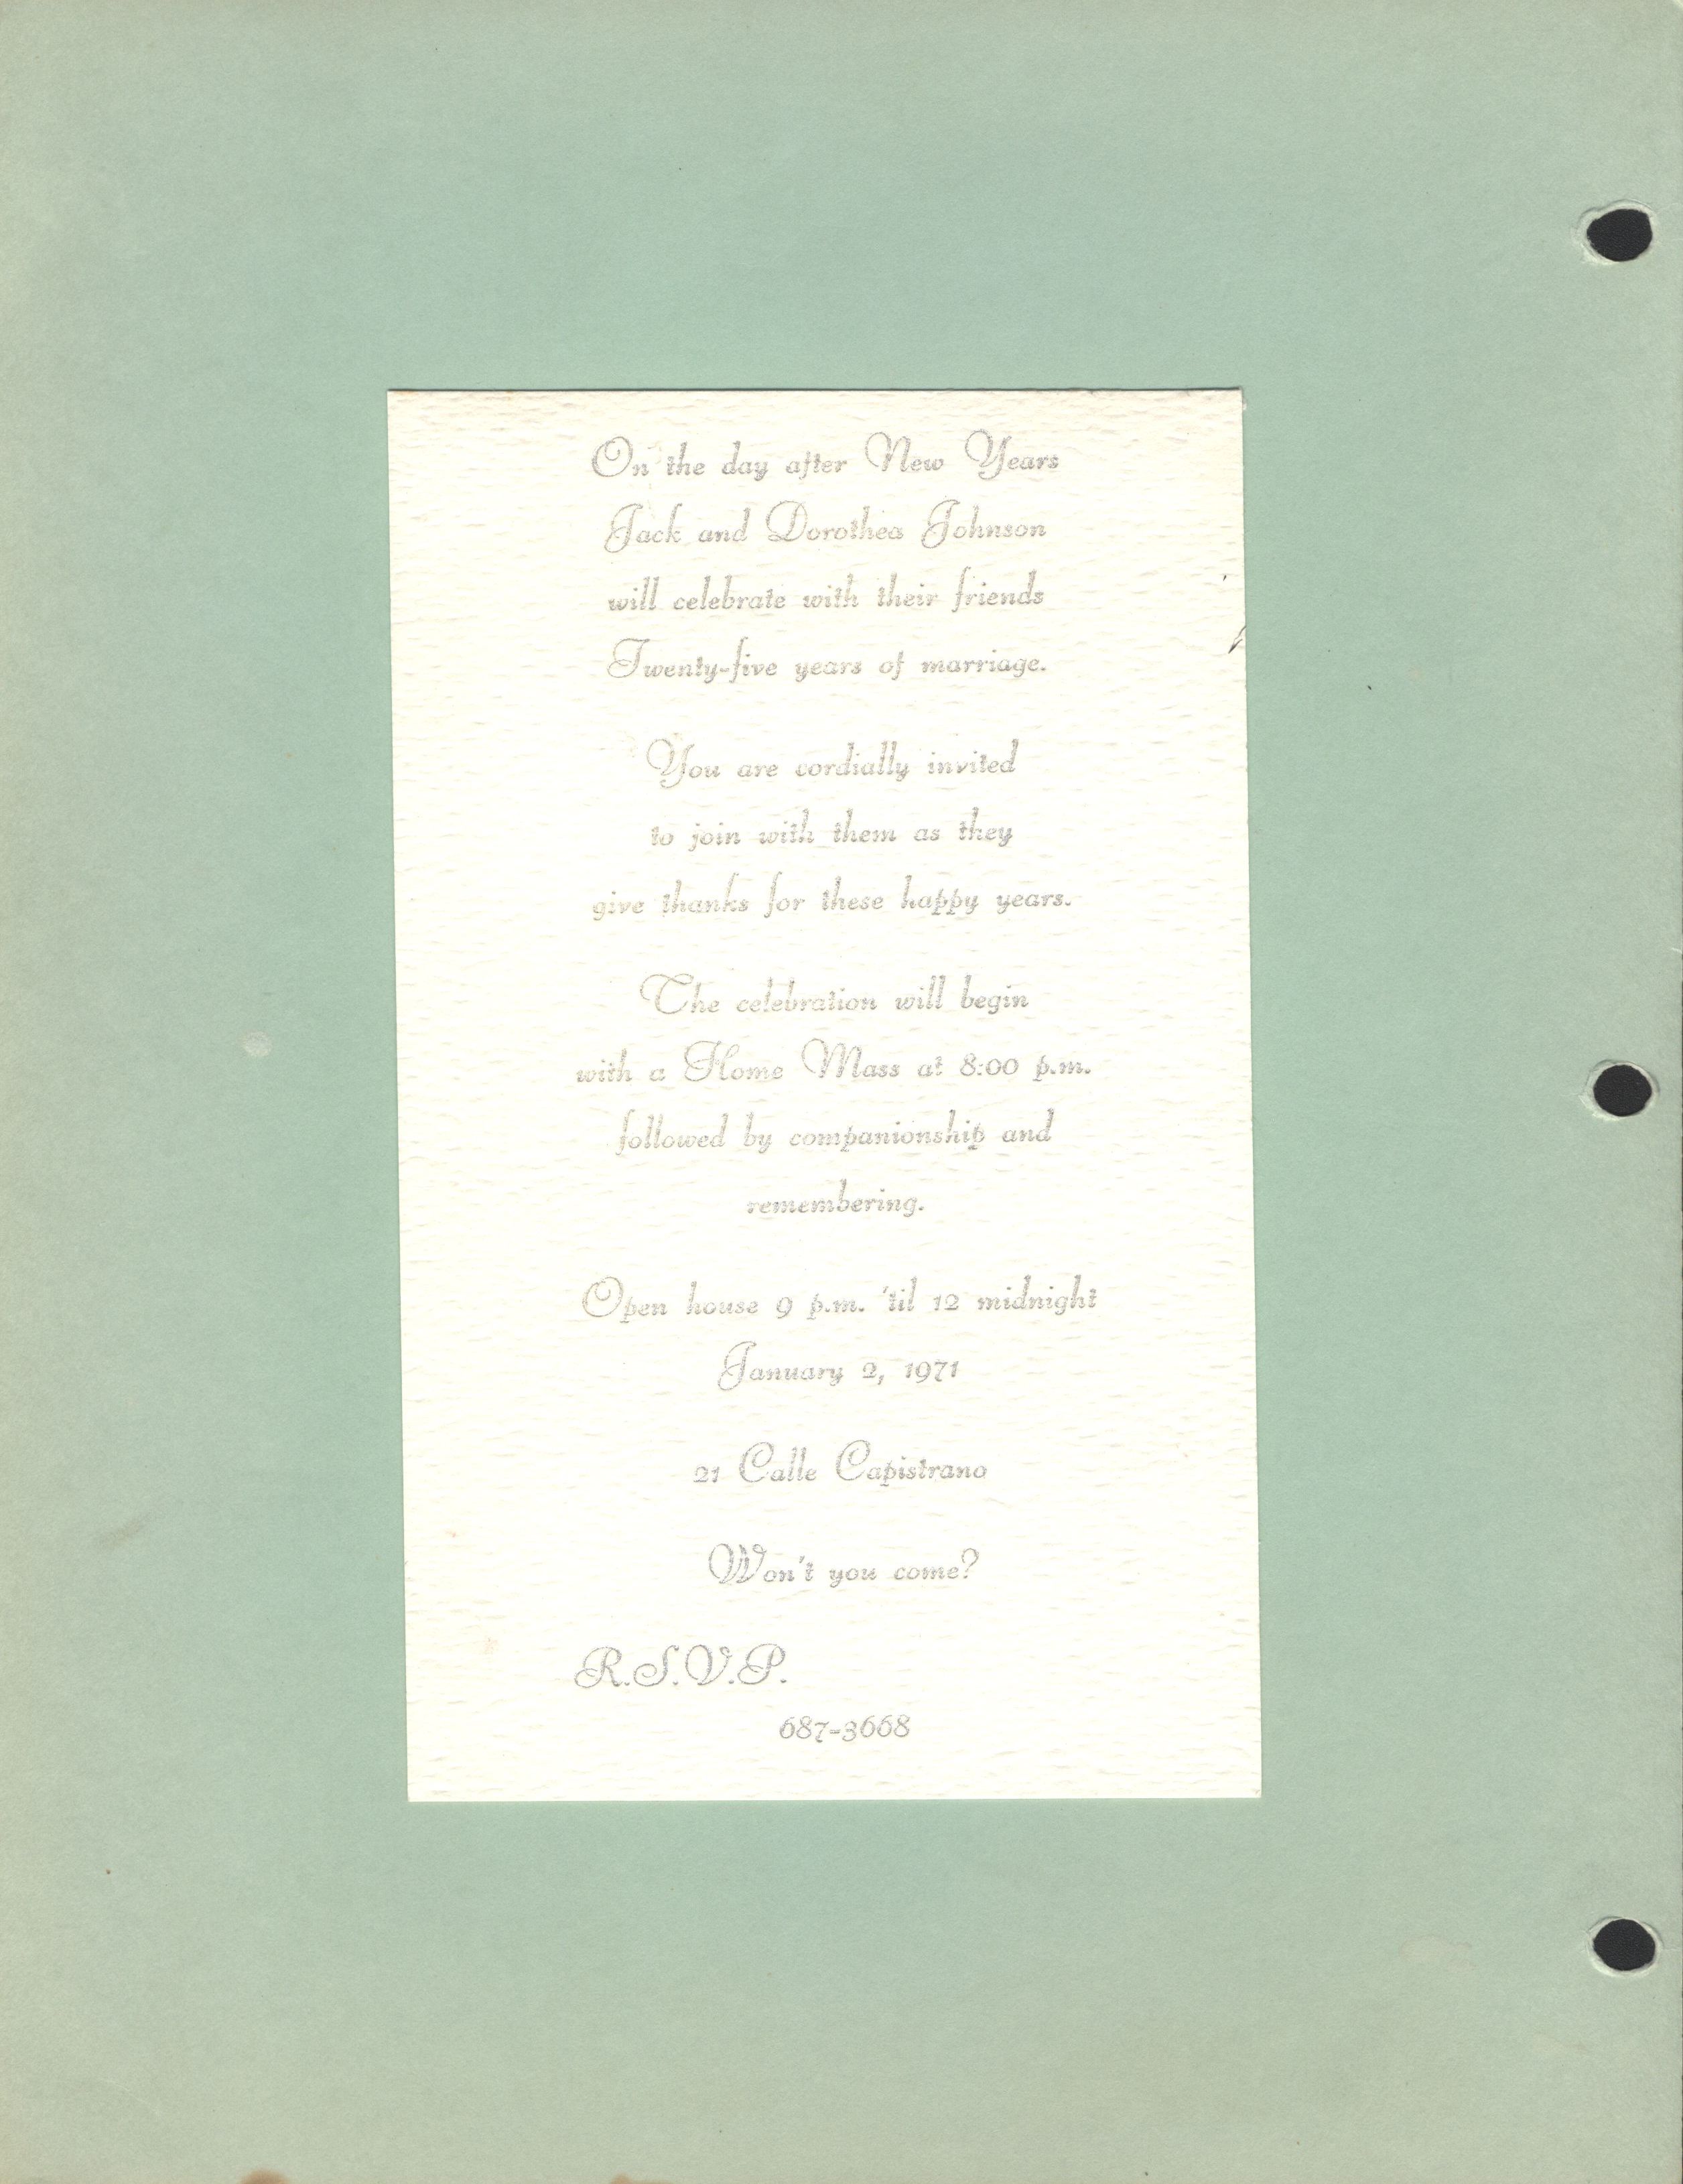 On the day after New Years
Jack and Dorothea Johnson
will celebrate with their friends
Twenty-five years of marriage.
You are cordially invited
to join with them as they
give thanks for these happy years.
The celebration will begin
with a Home Mass at 8:00 p.m.
followed by companionship and
remembering.
Open house 9 p.m. 'til 12 midnight
January 2, 1971
21 Calle Capistrano
Won't you come?
R.S.V.P.
687-3668